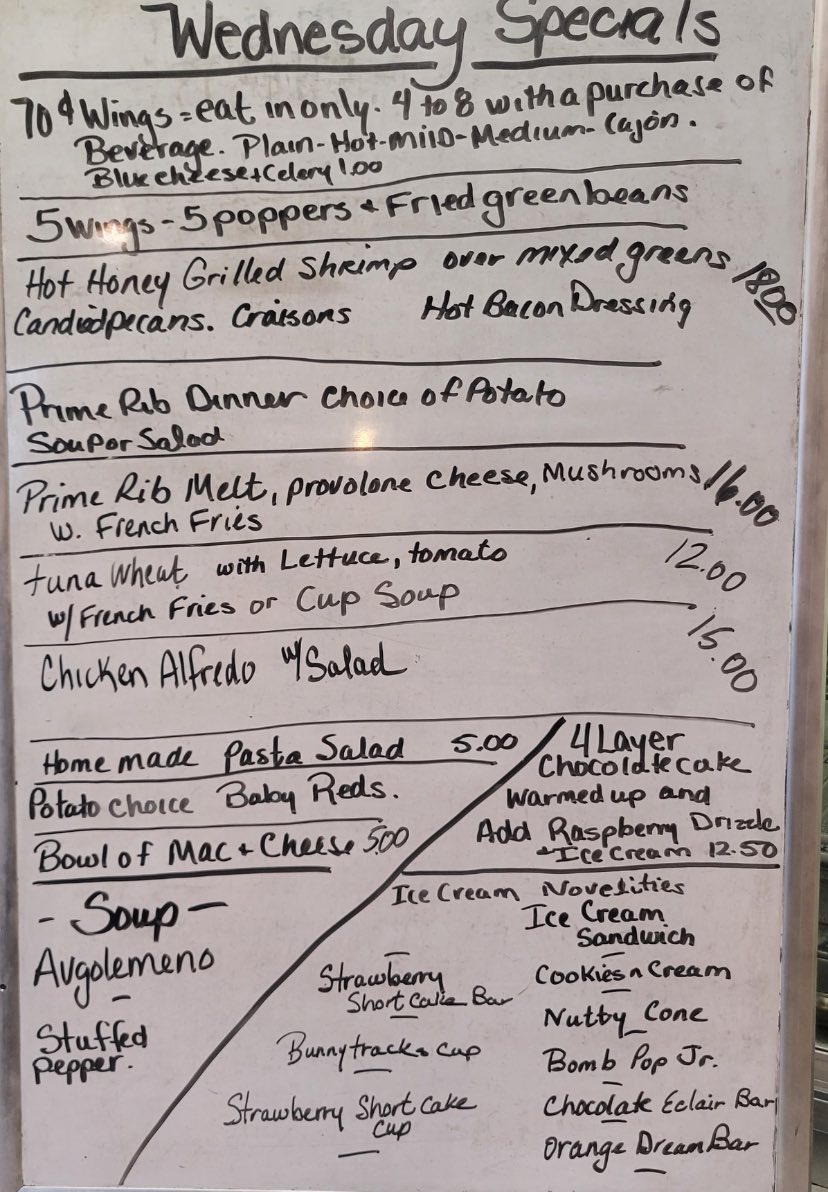 Wednesday Specials
70¢ Wings = eat in only. 4 to 8 with a purchase of
Beverage. Plain-Hot-Mild-Medium-Cajon.
Blue cheese + Celery 1.00
5 wings - 5 poppers + Fried green beans
Hot Honey Grilled Shrimp over mixed greens 18.00
Candied pecans. Craisons Hot Bacon Dressing
Prime Rib Dinner choice of Potato
Soup or Salad
Prime Rib Melt, provolone cheese, Mushrooms 16.00
w. French Fries
tuna wheat with Lettuce, tomato 12.00
w/ French Fries or Cup Soup
Chicken Alfredo w/ Salad 15.00
Home made Pasta Salad 5.00
Potato choice Baby Reds.
Bowl of Mac + Cheese 5.00
4 Layer
Chocolate cake
Warmed up and
Add Raspberry Drizzle
+ Ice Cream 12.50
- Soup -
Avgolemeno
-
Stuffed
Pepper.
Ice Cream Novelities
Ice Cream
Sandwich
Strawberry
Short Cake Bar
Bunny tracks cup
Strawberry Short Cake
Cup
Cookies n Cream
Nutty Cone
Bomb Pop Jr.
Chocolate Eclair Bar
Orange Dream Bar